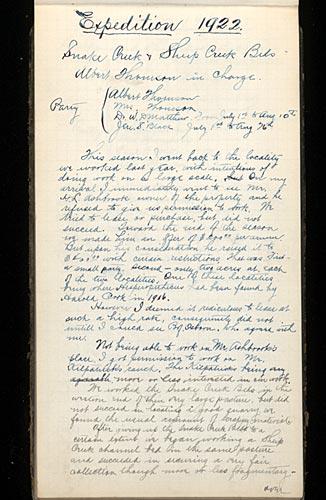 Expedition 1922.
Snake Creek & Sheep Creek Beds -
Albert Thomson in charge.
Party { Albert Thomson
Mrs. Thomson
Dr. W. D. Matthew from July 1st to Aug 10th
Jas. S. Black July 1st to Aug
This season I went back to the locality
we worked last year, with intentions of
doing work on a large scale, On my
arrival I immediately went to see Mr.
owner of the property and he
refused to give us permission to work. We
tried to lease or purchase, but did not
succeed. Toward the end of the season
we made him an offer of
But upon his causing he raised it to
with certain restrictions. This was first -
a small party, second - only two acres at each
of the two localities. One of these localities
being where Hesperopithecus had been found by
Harold Cook in 1916.
However I deemed it ridiculous to lease at
such a high rate, consequently did not
until I could see Prof. Osborn. Who agreed with
me.
Not being able to work on Mr Ashbrook's
place, I got permission to work on Mr.
Kilpatrick's ranch. The Kilpatricks being very
more or less interested in our work.
We worked the Snake Creek Beds in the
western end of their very large pasture, but did
not succeed in locating a good quarry, we
found the usual amount of
After giving up the Snake Creek Beds to a
certain extent we began working a Sheep
Creek channel bed in the same pasture
and succeeded in securing a very fair
collection though more or less fragmentary -
over